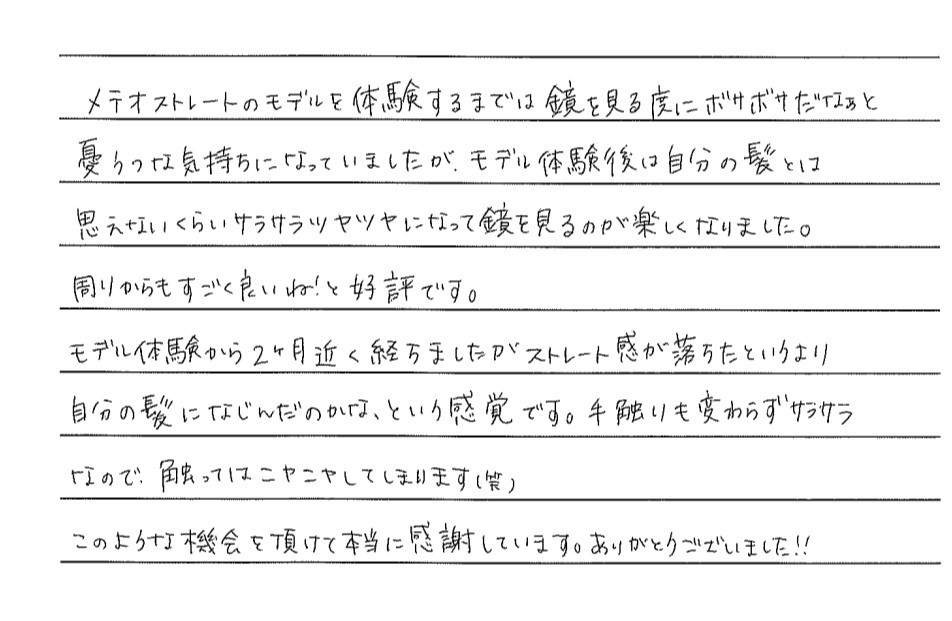 メテオストレートのモデルを体験するまでは鏡を見る度にボサボサだなぁと
憂うつな気持ちになっていましたが、モデル体験後は自分の髪とは
思えないくらいサラサラツヤツヤになって鏡を見るのが楽しくなりました。
周りからもすごく良いね!と好評です。
モデル体験から2ヶ月近く経ちましたがストレート感が落ちたというより
自分の髪になじんだのかな、という感覚です。手触りも変わらずサラサラ
なので、触ってはニヤニヤしてしまいます(笑)
このような機会を頂けて本当に感謝しています。ありがとうございました!!